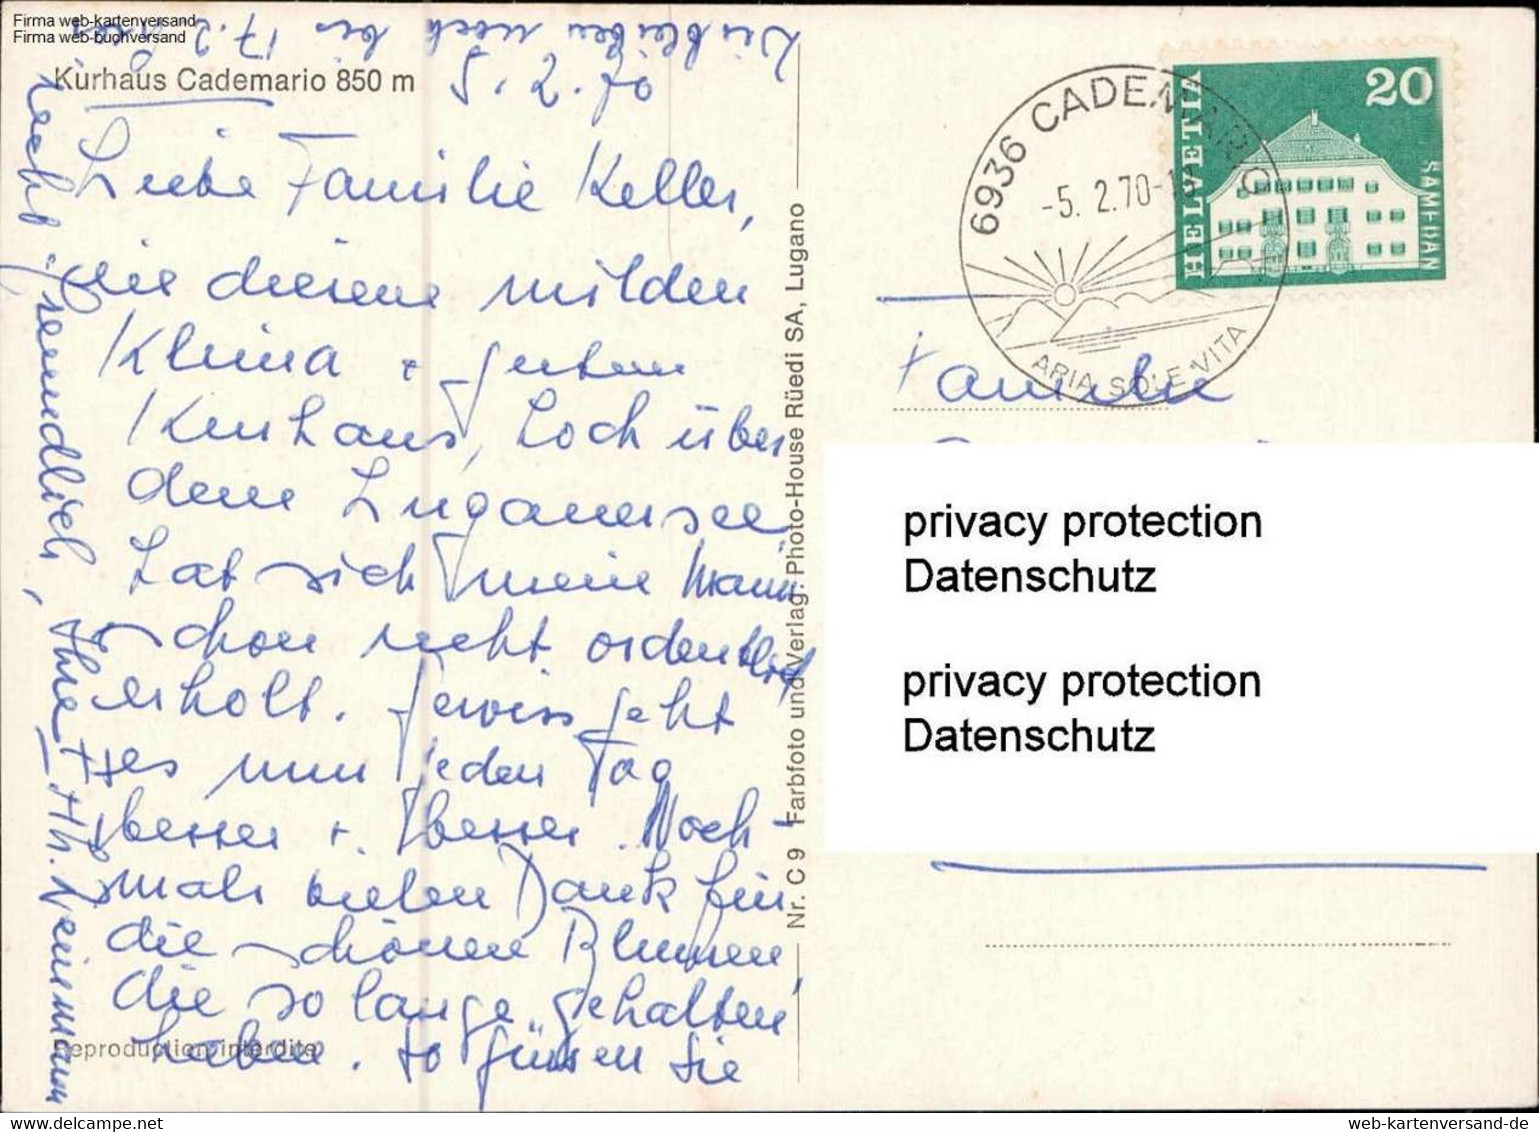 Firma web-kartenversand
Firma web-buchversand
Wir bleiben noch bis 17.2.
Kurhaus Cademario 850 m
5.2.70
Liebe Familie Keller,
in diesem milden
Klima + guten
Kurhaus, hoch über
dem Luganersee,
hat sich mein Mann
schon recht ordentlich
erholt. Gewiss geht
es nun jeden Tag
besser + besser. Noch-
mals vielen Dank für
die schönen Blumen,
die so lange gehalten
haben. So grüssen Sie
recht freundlich, Ihre
Reproduction interdite
Nr. C 9 Farbfoto und Verlag: Photo-House Rüedi SA, Lugano
6936 CADEMARIO
-5. 2.70-1
ARIA SOLE VITA
HELVETIA
20
SAMEDAN
Familie
privacy protection
Datenschutz
privacy protection
Datenschutz
web-kartenversand-de